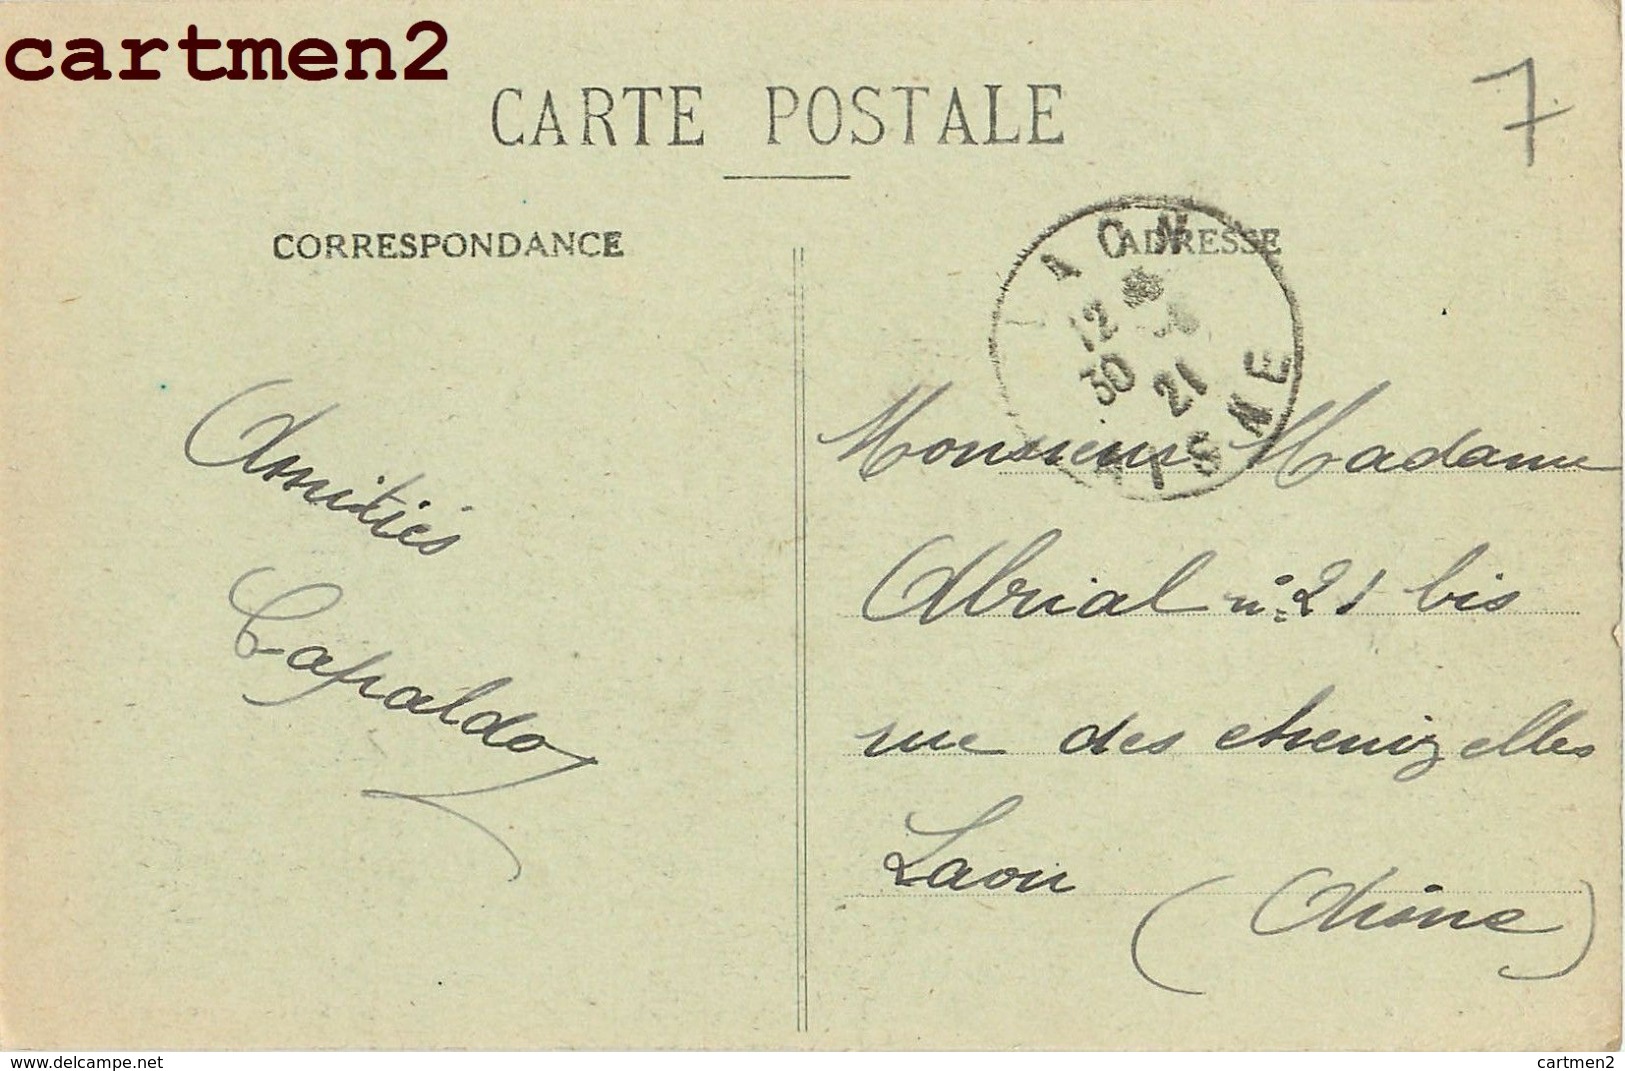 cartmen2
CARTE POSTALE
7
CORRESPONDANCE
ADRESSE
LAON
12
30
21
AISNE
Amitiés
Capaldo
Monsieur Madame
Abrial n° 21 bis
rue des chenizelles
Laon
(Aisne)
www.delcampe.net
cartmen2